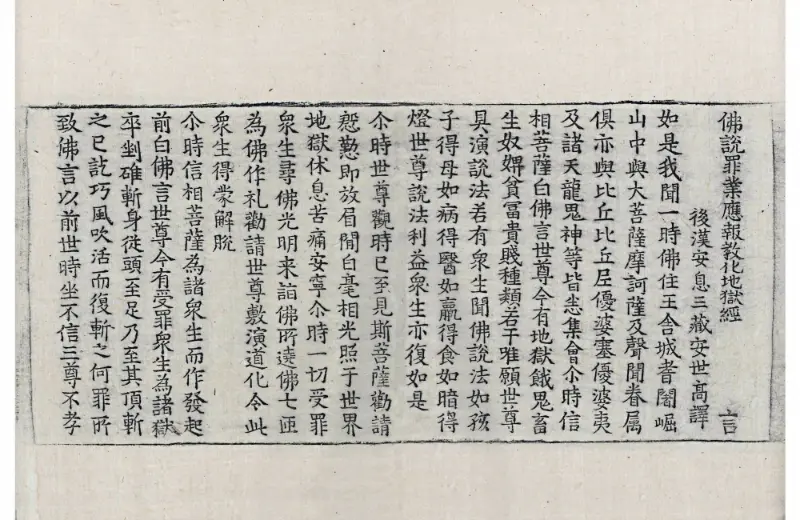 佛說罪業應報敎化地獄經
後漢安息三藏安世高譯 言
如是我聞一時佛住王舍城耆闍崛
山中與大菩薩摩訶薩及聲聞眷属
俱亦與比丘比丘尼優婆塞優婆夷
及諸天龍鬼神等皆悉集會尒時信
相菩薩白佛言世尊今有地獄餓鬼畜
生奴婢貧冨貴賤種類若干唯願世尊
具演說法若有衆生聞佛說法如孩
子得母如病得醫如羸得食如暗得
燈世尊說法利益衆生亦復如是
尒時世尊觀時已至見斯菩薩勸請
慇懃即放眉閒白毫相光照于世界
地獄休息苦痛安寧尒時一切受罪
衆生尋佛光明来詣佛所遶佛七匝
為佛作礼勸請世尊敷演道化令此
衆生得蒙解脫
尒時信相菩薩為諸衆生而作發起
前白佛言世尊今有受罪衆生為諸獄
卒剉碓斬身從頭至足乃至其頂斬
之已訖巧風吹活而復斬之何罪所
致佛言以前世時坐不信三尊不孝